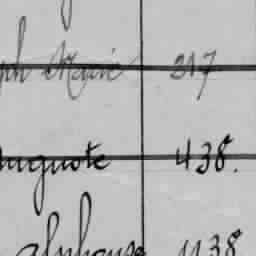 ph Marie 317
Auguste 438.
alphonse 438